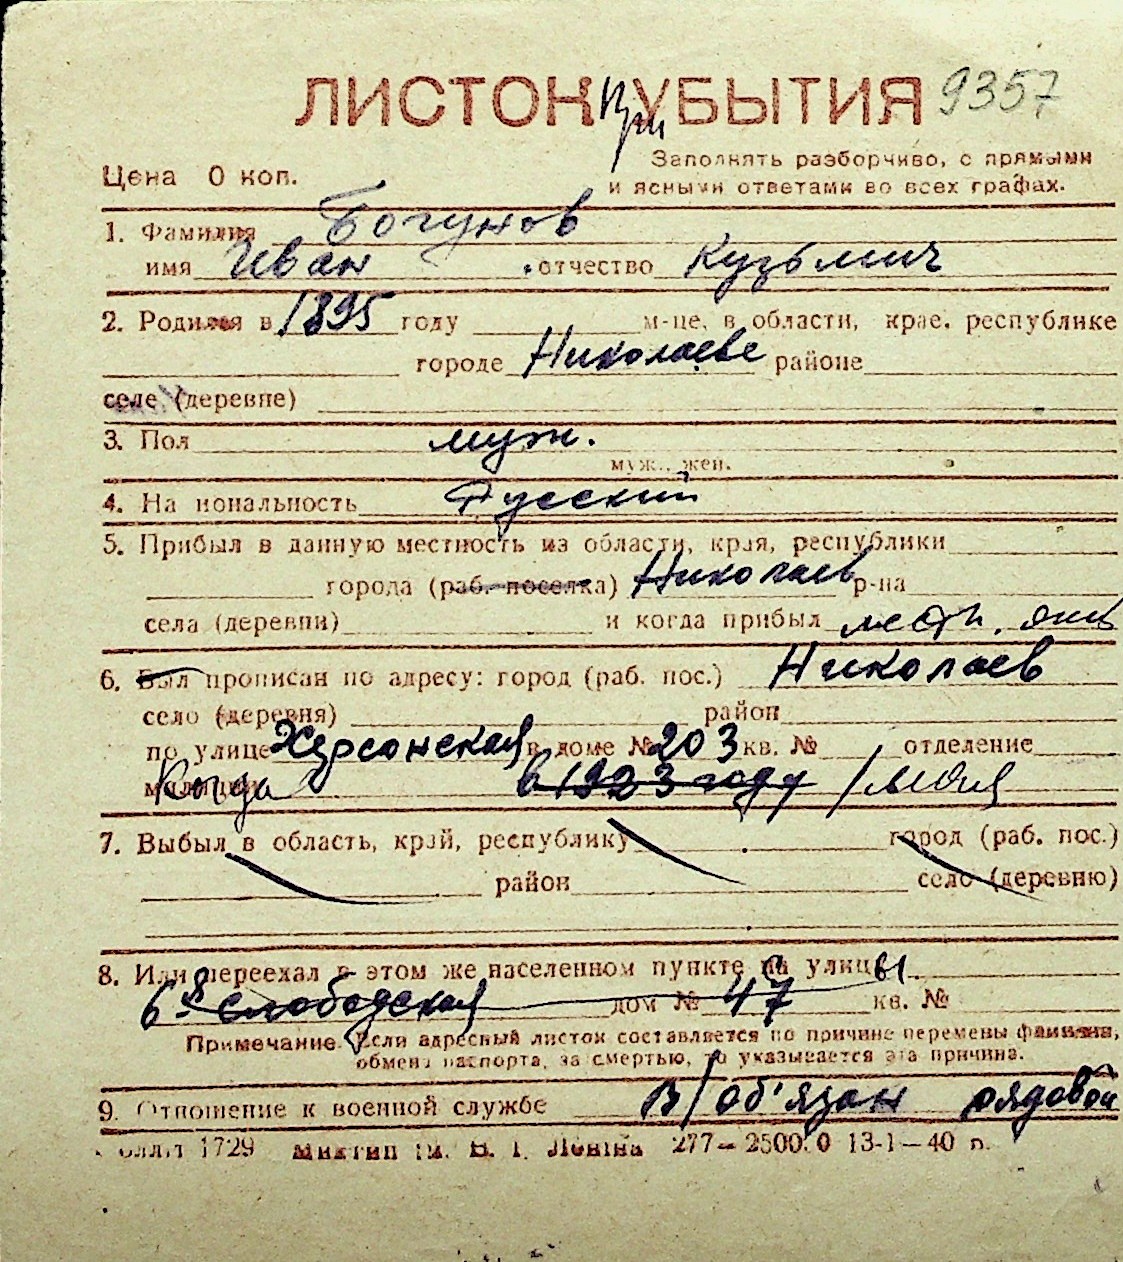 ЛИСТОК При УБЫТИЯ 9357
Цена 0 коп.
Заполнять разборчиво, с прямыми
и ясными ответами во всех графах.
1. Фамилия Богунов
имя Иван отчество Кузьмич
2. Родился в 1895 году м-це, в области, крае, республике
городе Николаеве районе
селе (деревне)
3. Пол муж.
муж., жен.
4. На иональность Русский
5. Прибыл в данную местность из области, края, республики
города (раб. поселка) Николаев р-на
села (деревни) и когда прибыл мест.
6. Был прописан по адресу: город (раб. пос.) Николаев
село (деревня) район
по улице Херсонская в доме № 203 кв. № отделение
милиции Когда в 1923 году
7. Выбыл в область, край, республику город (раб. пос.)
район село (деревню)
8. Или переехал в этом же населенном пункте с улицы
6 Слободская дом № 47 кв. №
Примечание. Если адресный листок составляется по причине перемены фамилии,
обмена паспорта, за смертью, то указывается эта причина.
9. Отношение к военной службе в/об'язан рядовой
1729 ім. В. І. Леніна 277—25000 13-1—40 п.